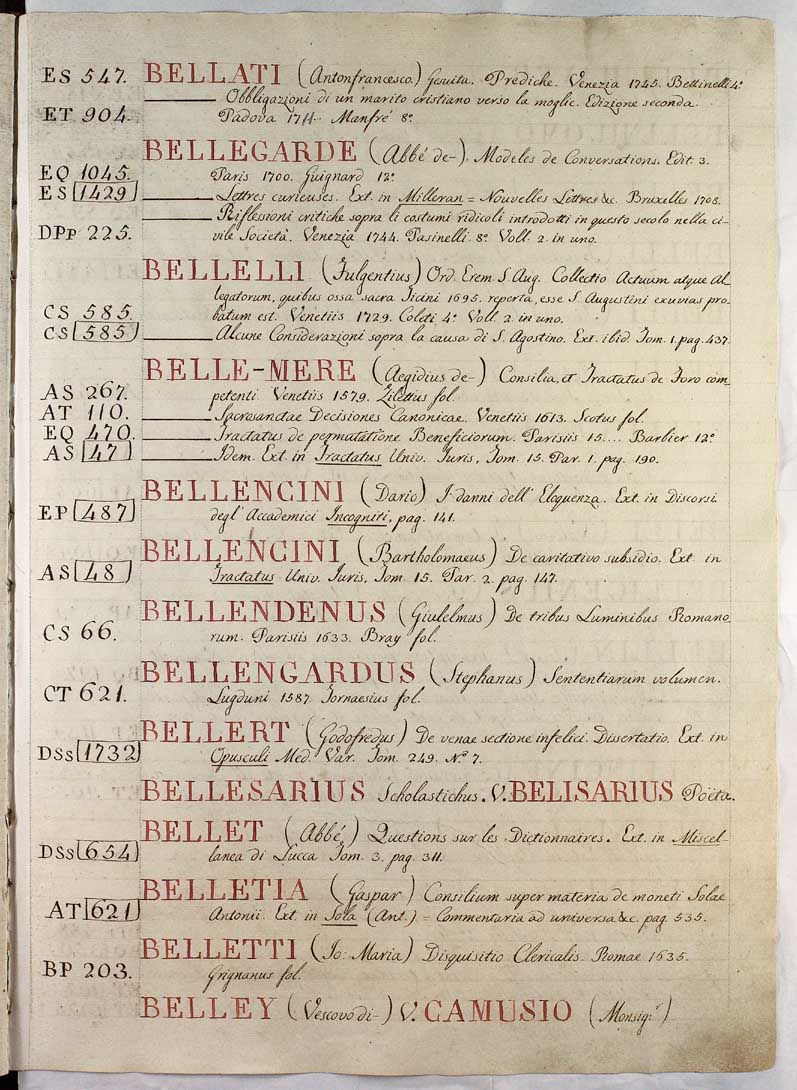 ES 547. BELLATI (Antonfrancesco.) Gesuita. Prediche. Venezia 1745. Bettinelli 4.º
——— Obbligazioni di un marito cristiano verso la moglie. Edizione seconda.
ET 904. Padova 1711. Manfrè 8.º
BELLEGARDE (Abbé de-). Modeles de Conversations. Edit. 3.
EQ 1045. Paris 1700. Guignard 12.º
ES 1429 ——— Lettres curieuses. Ext. in Milleran = Nouvelles Lettres &c. Bruxelles 1708.
——— Riflessioni critiche sopra li costumi ridicoli introdotti in questo secolo nella ci-
DPp 225. vile Società. Venezia 1744. Pasinelli 8.º Voll. 2. in uno.
BELLELLI (Fulgentius) Ord. Erem. S. Aug. Collectio Actuum atque Al-
legatorum, quibus ossa sacra Ticini 1695. reperta, esse S. Augustini exuvias pro-
CS 585. batum est. Venetiis 1729. Coleti 4.º Voll. 2. in uno.
CS 585 ——— Alcune Considerazioni sopra la causa di S. Agostino. Ext. ibid. Tom. 1. pag. 437.
BELLE-MERE (Aegidius de-) Consilia, et Tractatus de Foro com-
AS 267. petenti Venetiis 1579. Zilettus fol.
AT 110. ——— Sacrosanctae Decisiones Canonicae. Venetiis 1613. Scotus fol.
EQ 470. ——— Tractatus de permutatione Beneficiorum. Parisiis 15.... Barbier 12.º
AS 47 ——— Idem. Ext. in Tractatus Univ. Juris, Tom. 15. Par. 1. pag. 190.
BELLENCINI (Dario) I danni dell' Eloquenza. Ext. in Discorsi
EP 487 degl' Accademici Incogniti, pag. 141.
BELLENCINI (Bartholomaeus) De caritativo subsidio. Ext. in
AS 48 Tractatus Univ. Juris, Tom. 15. Par. 2. pag. 147.
BELLENDENUS (Giulelmus) De tribus Luminibus Romano-
CS 66. rum. Parisiis 1633. Bray fol.
BELLENGARDUS (Stephanus) Sententiarum volumen.
CT 621. Lugduni 1587. Tornaesius fol.
BELLERT (Godofredus) De venae sectione infelici. Dissertatio. Ext. in
DSs 1732 Opusculi Med. Var. Tom. 249. N.º 7.
BELLESARIUS Scholastichus. V. BELISARIUS Poëta.
BELLET (Abbé) Questions sur les Dictionnaires. Ext. in Miscel-
DSs 654 lanea di Lucca Tom. 3. pag. 311.
BELLETIA (Gaspar) Consilium super materia de moneti Solae
AT 621 Antonii. Ext. in Sola (Ant.) = Commentaria ad universa &c. pag. 535.
BELLETTI (Jo: Maria) Disquisitio Clericalis. Romae 1635.
BP 203. Grignanus fol.
BELLEY (Vescovo di-) V. CAMUSIO (Monsig.r)